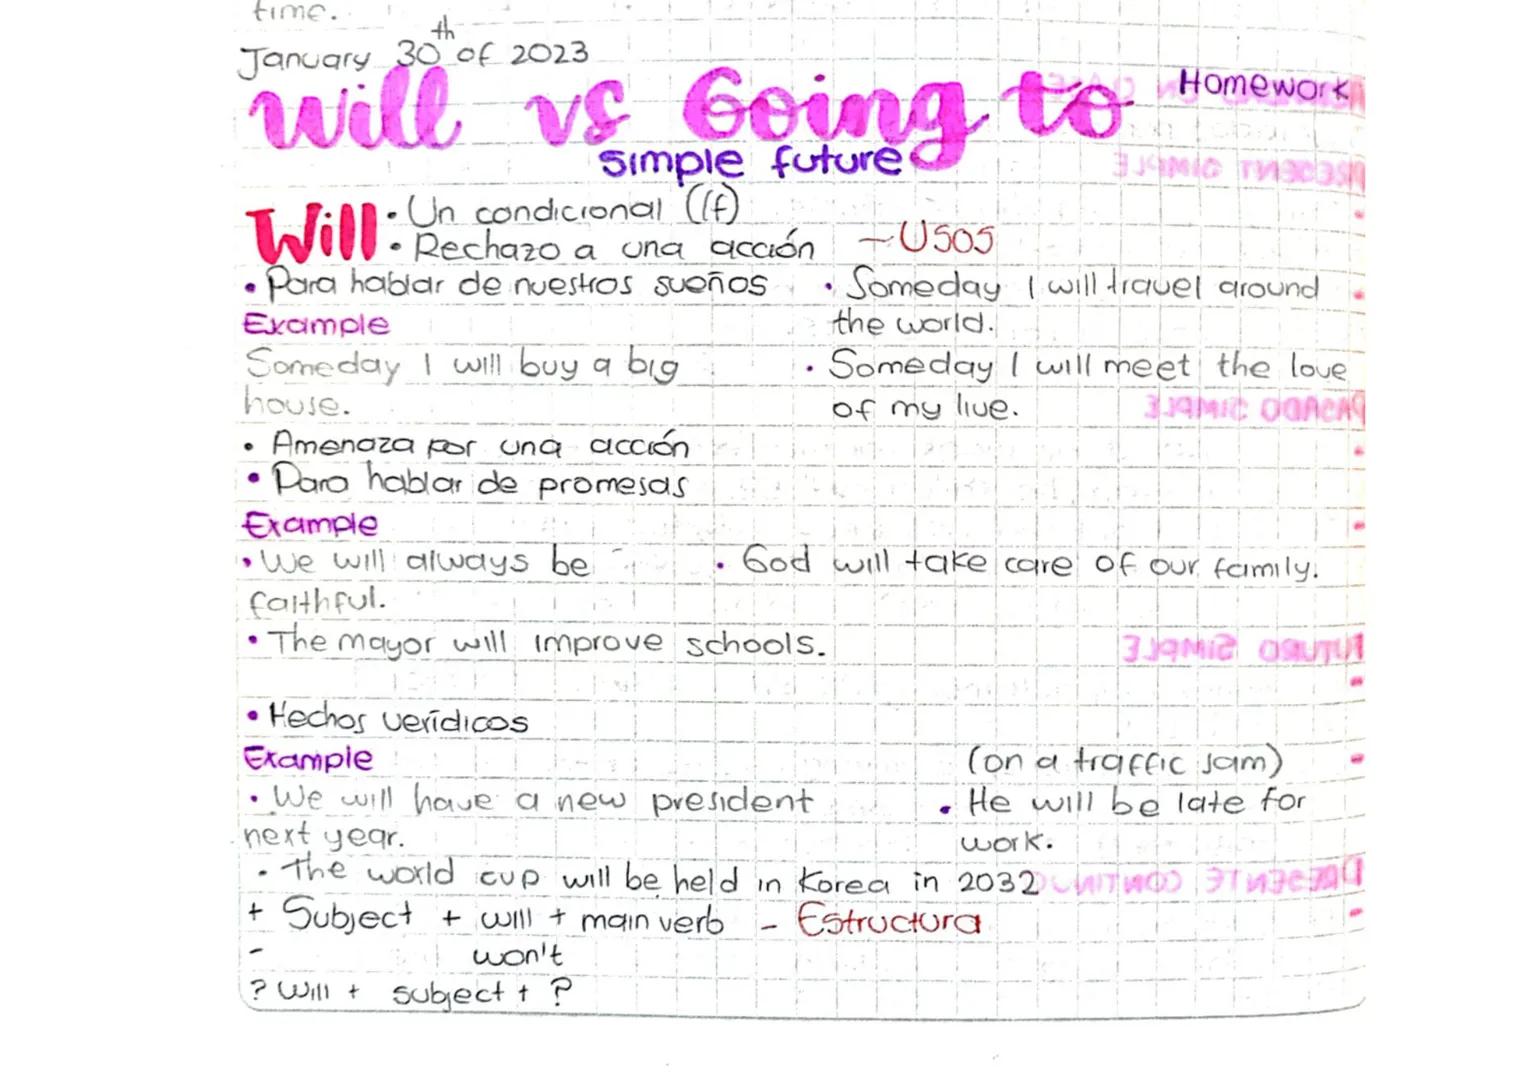 time.
January 30th of 2023
Will vs Going to
Homework
simple future
Will • Un condicional (If)
• Rechazo a una acción — Usos
• Para hablar de nuestros sueños
Example
Someday I will buy a big
house.
• Someday I will travel around
the world.
• Someday I will meet the love
of my live.
• Amenaza por una acción
• Para hablar de promesas
Example
• We will always be
faithful.
• God will take care of our family.
• The mayor will improve schools.
• Hechos verídicos
Example
• We will have a new president
next year.
(on a traffic jam)
• He will be late for
work.
• The world cup will be held in Korea in 2032
+ Subject + will + main verb - Estructura
- won't
? Will + subject + ?